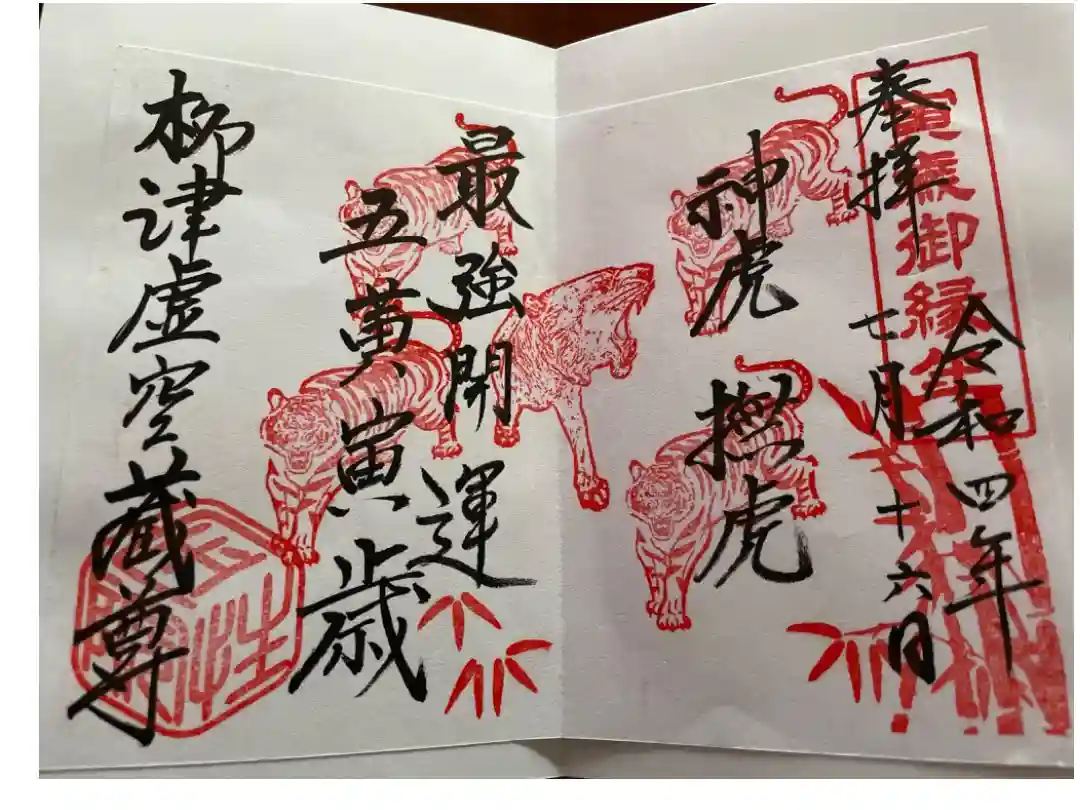 奉拝
令和四年
七月十六日
神虎
撫虎
最強開運
五黄寅歳
柳津虚空蔵尊